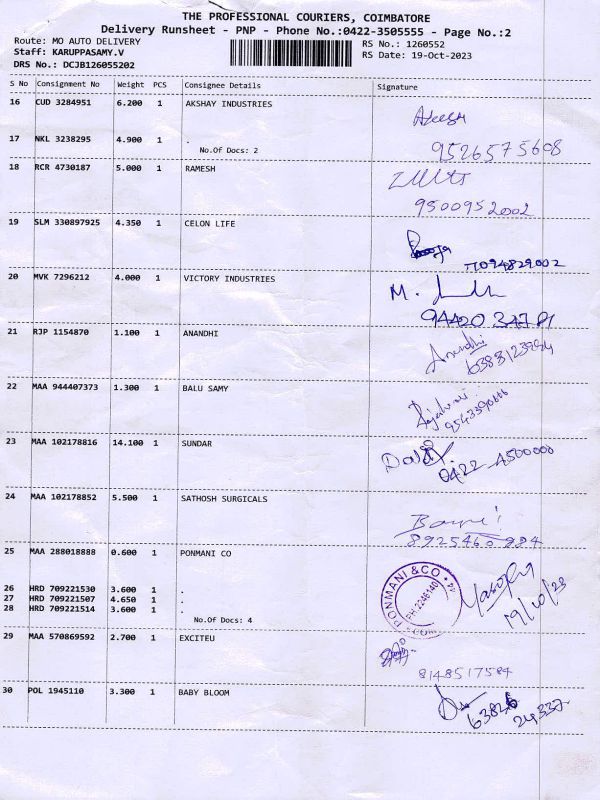 THE PROFESSIONAL COURIERS, COIMBATORE
Delivery Runsheet - PNP - Phone No.:0422-3505555 - Page No.:2
Route: MO AUTO DELIVERY RS No.: 1260552
Staff: KARUPPASAMY.V RS Date: 19-Oct-2023
DRS No.: DCJB126055202
S No Consignment No Weight PCS Consignee Details Signature
16 CUD 3284951 6.200 1 AKSHAY INDUSTRIES
17 NKL 3238295 4.900 1 .
No.Of Docs: 2
9526575608
18 RCR 4730187 5.000 1 RAMESH
9500952002
19 SLM 330897925 4.350 1 CELON LIFE
20 MVK 7296212 4.000 1 VICTORY INDUSTRIES
M.
21 RJP 1154870 1.100 1 ANANDHI
Anandhi
22 MAA 944407373 1.300 1 BALU SAMY
23 MAA 102178816 14.100 1 SUNDAR
0422 4500000
24 MAA 102178852 5.500 1 SATHOSH SURGICALS
8925460984
25 MAA 288018888 0.600 1 PONMANI CO
PONMANI & CO
PH:2246140
19/10/23
26 HRD 709221530 3.600 1 .
27 HRD 709221507 4.650 1 .
28 HRD 709221514 3.600 1 .
No.Of Docs: 4
29 MAA 570869592 2.700 1 EXCITEU
8148517584
30 POL 1945110 3.300 1 BABY BLOOM